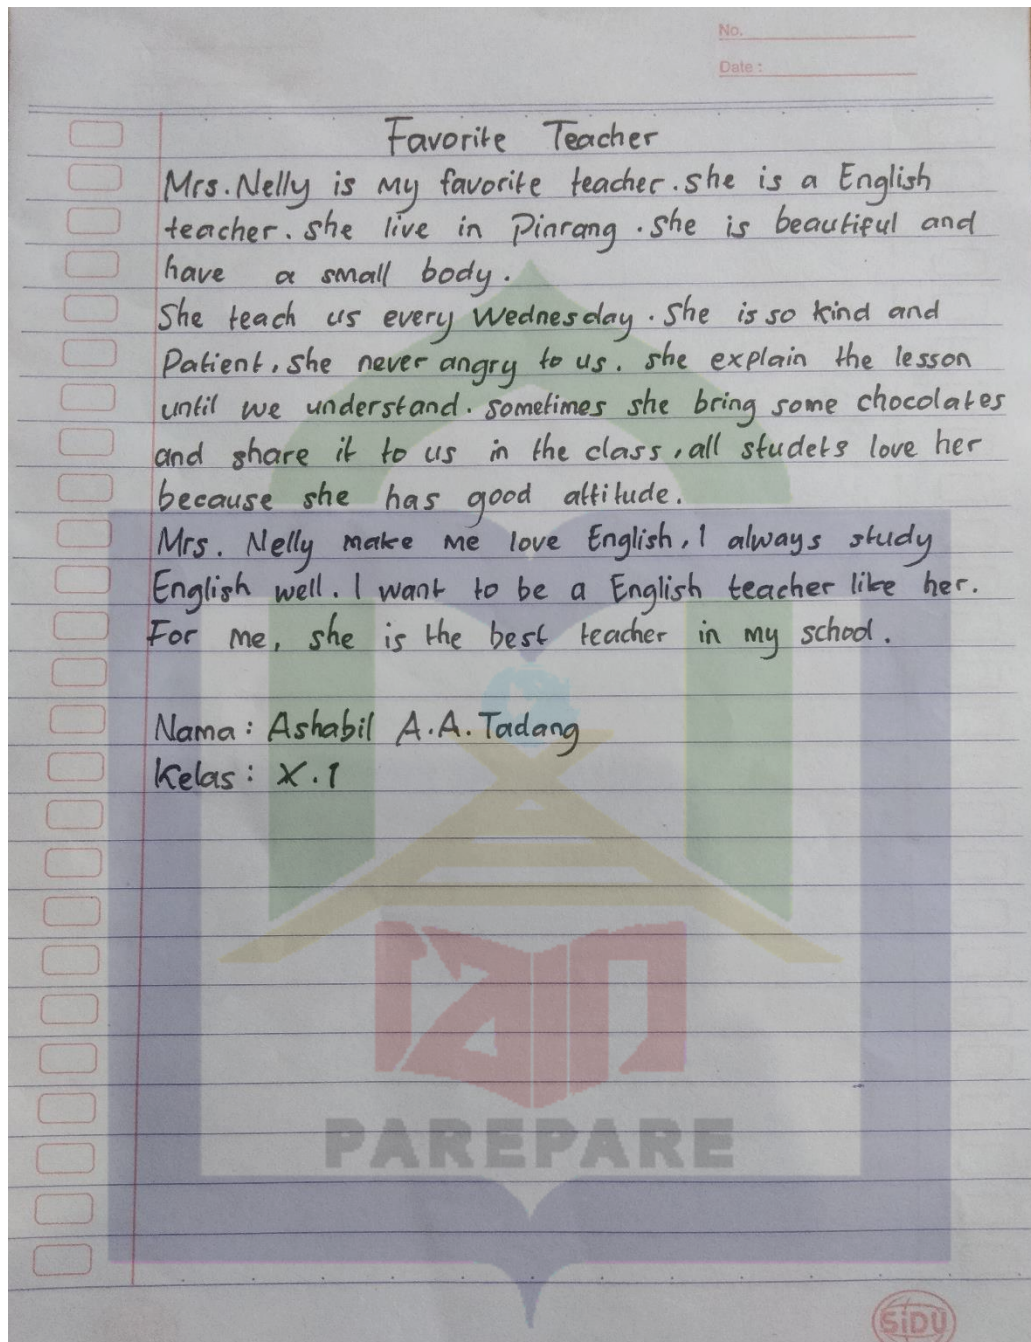 No.
Date :
Favorite Teacher
Mrs. Nelly is my favorite teacher. she is a English
teacher. she live in Pinrang. She is beautiful and
have a small body.
She teach us every Wednesday. She is so kind and
Patient, she never angry to us. she explain the lesson
until we understand. sometimes she bring some chocolates
and share it to us in the class, all studets love her
because she has good attitude.
Mrs. Nelly make me love English, I always study
English well. I want to be a English teacher like her.
For me, she is the best teacher in my school.
Nama : Ashabil A.A. Tadang
Kelas : X.1
PAREPARE
SiDU